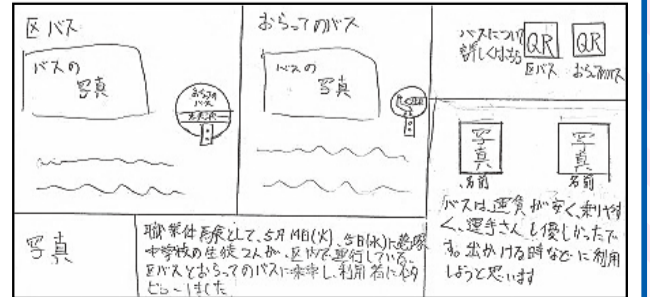 区バス
バスの
写真
おらってのバス
バスの
写真
バスについて
詳しくはこちら
QR
QR
区バス
おらってのバス
写真
名前
写真
名前
バスは、運賃が安く、乗りやす
く、運手さんも優しかったで
す。出かける時などに利用
しようと思います
写真
職業体験として、5月14日(火)、
中学校の生徒2人が、区内で運行している、
区バスとおらってのバスに乗車し、利用者に